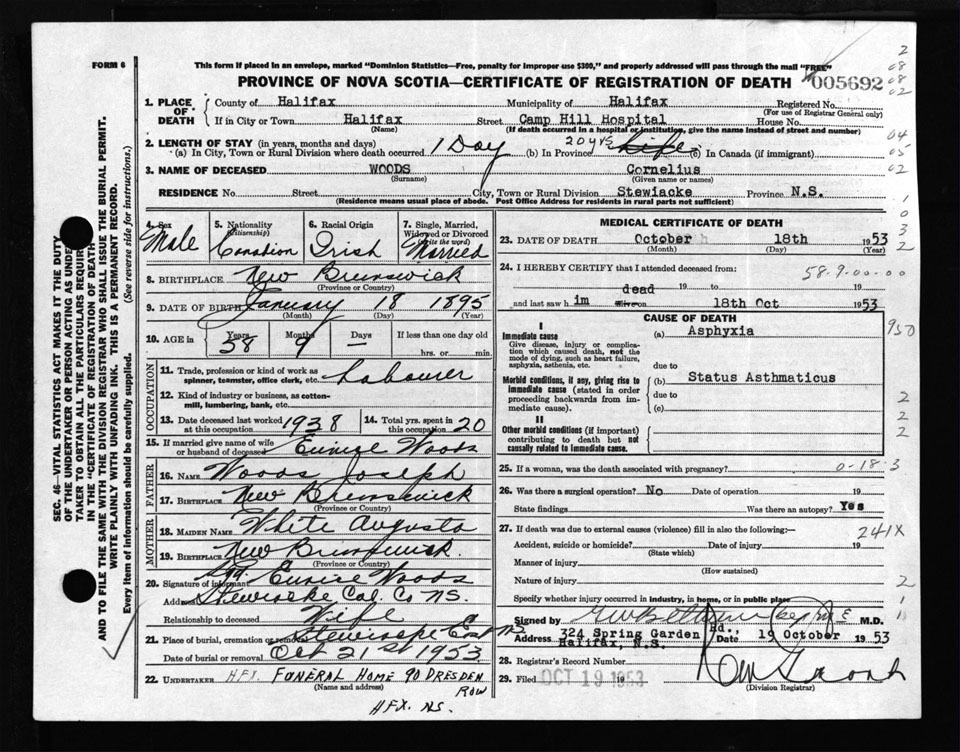 FORM 6
This form if placed in an envelope, marked "Dominion Statistics—Free, penalty for improper use $300," and properly addressed will pass through the mail "FREE"
PROVINCE OF NOVA SCOTIA—CERTIFICATE OF REGISTRATION OF DEATH 005692
1. PLACE OF DEATH
County of Halifax Municipality of Halifax Registered No.
(For use of Registrar General only)
If in City or Town Halifax Street Camp Hill Hospital House No.
(Name) (If death occurred in a hospital or institution, give the name instead of street and number)
2. LENGTH OF STAY (in years, months and days)
(a) In City, Town or Rural Division where death occurred 1 Day (b) In Province 20 yrs Life (c) In Canada (if immigrant)
3. NAME OF DECEASED WOODS Cornelius
(Surname) (Given name or names)
RESIDENCE No. Street City, Town or Rural Division Stewiacke Province N.S.
(Residence means usual place of abode. Post Office Address for residents in rural parts not sufficient)
4. Sex Male
5. Nationality (Citizenship) Canadian
6. Racial Origin Irish
7. Single, Married, Widowed or Divorced (write the word) Married
8. BIRTHPLACE New Brunswick
(Province or Country)
9. DATE OF BIRTH January 18 1895
(Month) (Day) (Year)
10. AGE in Years Months Days If less than one day old
58 9 — hrs. or min.
OCCUPATION
11. Trade, profession or kind of work as spinner, teamster, office clerk, etc. Labourer
12. Kind of industry or business, as cotton-mill, lumbering, bank, etc.
13. Date deceased last worked at this occupation 1938
14. Total yrs. spent in this occupation 20
15. If married give name of wife or husband of deceased Eunice Woods
FATHER
16. NAME Woods Joseph
17. BIRTHPLACE New Brunswick
(Province or Country)
MOTHER
18. MAIDEN NAME White Augusta
19. BIRTHPLACE New Brunswick.
(Province or Country)
20. Signature of informant Eunice Woods
Address Stewiacke Col. Co NS.
Relationship to deceased Wife
21. Place of burial, cremation or removal Stewiacke East NS
Date of burial or removal Oct 21st 1953
22. UNDERTAKER HFX. FUNERAL HOME 90 DRESDEN ROW
(Name and address)
HFX. NS.
MEDICAL CERTIFICATE OF DEATH
23. DATE OF DEATH October 18th 1953
(Month) (Day) (Year)
24. I HEREBY CERTIFY that I attended deceased from: 58-9-00-00
19 to 19
and last saw him dead alive on 18th Oct 1953
CAUSE OF DEATH
I
Immediate cause
Give disease, injury or complication which caused death, not the mode of dying, such as heart failure, asphyxia, asthenia, etc.
(a) Asphyxia
due to
Morbid conditions, if any, giving rise to immediate cause (stated in order proceeding backwards from immediate cause).
(b) Status Asthmaticus
due to
(c)
II
Other morbid conditions (if important) contributing to death but not causally related to immediate cause.
25. If a woman, was the death associated with pregnancy? 0-18-3
26. Was there a surgical operation? No Date of operation 19
State findings Was there an autopsy? Yes
27. If death was due to external causes (violence) fill in also the following:— 241X
Accident, suicide or homicide? Date of injury 19
(State which)
Manner of injury
(How sustained)
Nature of injury
Specify whether injury occurred in industry, in home, or in public place
Signed by M.D.
Address 324 Spring Garden Rd., Halifax, N.S. Date 19 October 1953
28. Registrar's Record Number
29. Filed OCT 19 1953
(Division Registrar)
SEC. 46—VITAL STATISTICS ACT MAKES IT THE DUTY
OF THE UNDERTAKER OR PERSON ACTING AS UNDERTAKER
TO OBTAIN ALL THE PARTICULARS REQUIRED
IN THE "CERTIFICATE OF REGISTRATION OF DEATH"
AND TO FILE THE SAME WITH THE DIVISION REGISTRAR WHO SHALL ISSUE THE BURIAL PERMIT.
WRITE PLAINLY WITH UNFADING INK. THIS IS A PERMANENT RECORD.
Every item of information should be carefully supplied. (See reverse side for instructions.)